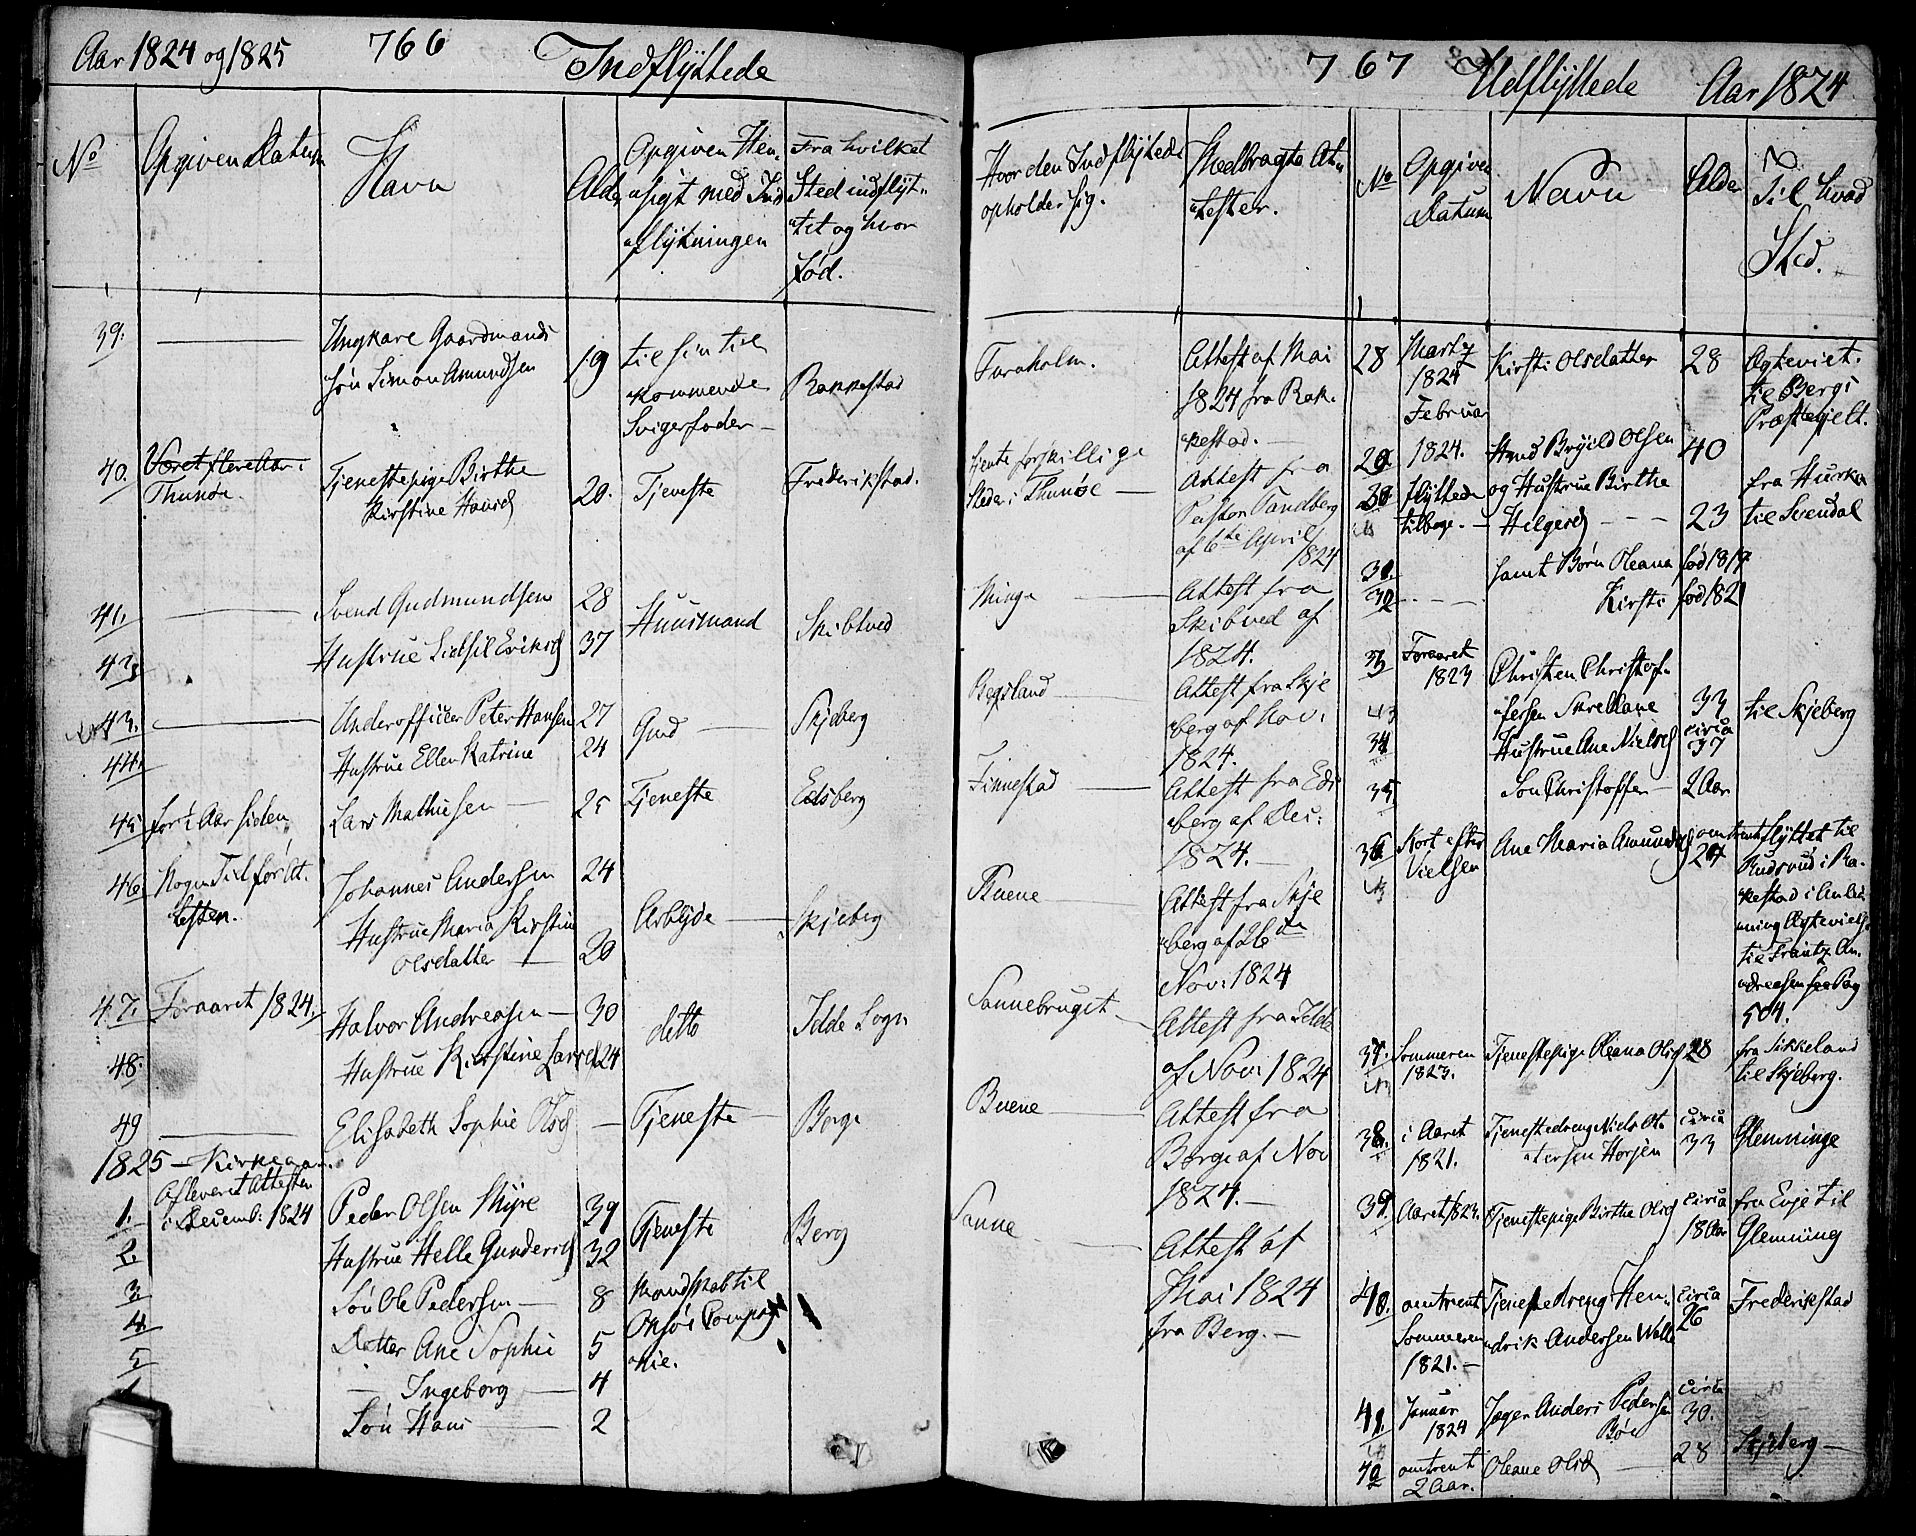 Aar 1824 og 1825
766
Indflyttede
No
Opgiven Datum
Navn
Alder
Opgiven Hen-
sigt med Ind
flytningen
Fra hvilket
Sted indflyt-
tet og hvor
fød.
39.
Ungkarl Gaardmands
Søn Simon Amundsen
19
til sin til
kommende
Svigerfader
Rakkestad
40.
Været flere Aar i
Thunøe.
Tjenestepige Birthe
Kirstine Hansd
20.
Tjeneste
Frederikstad.
41.
Svend Gudmundsen
28
Huusmand
Skibtved
42
Hustrue Lidsil Eriksd
37
43.
Underofficer Peter Hansen
27
Gud
Skjeberg
44.
Hustrue Ellen Katrine
24
45
for 1 Aar siden
Lars Mathiesen
25
Tjeneste
Edsberg
46
Nogen Tid før At-
testen.
Johannes Andersen
24
Hustrue Maria Kirstine
Olsdatter
20
Arbyde
Skjeberg
47.
Foraaret 1824.
Halvor Andreasen
30
ditto
Idde Sogn
48.
Hustrue Kirstine Larsd
24
49
Elisabeth Sophie Olsd
Tjeneste
Borge
1825 - Kirkeaar.
Afleveret Attesten
1.
i Decemb: 1824
Peder Olsen Myre
39
Tjeneste
Berg
2.
Hustrue Helle Gundersd
32
3.
Søn Ole Pedersen
8
Mandskab til
4.
Datter Ane Sophie
5
Onsøe Compag
nie.
5
Ingeborg
4
Søn Hans
2
767
Udflyttede
Aar 1824
Hvor den Indflyttede
opholder sig.
Medbragte At-
tester.
No
Opgiven
Datum
Navn
Alder
Til hvad
Sted.
Attest af Mai
1824 fra Rak-
kestad.
28
Marty
1824
Kirsti Olsdatter
28
Ægteviet
til Bergs
Præstegjelt.
tiente forskillige
Steder i Thunøe
Attest fra
Pastor Tandberg
af 6te April
1824
29
Februar
1824.
Olsen
40
30
flyttede
tilbage.
og Hustrue Birthe
23
fra
til Svendal
31
samt Børn Oleana
fød 1817
32
Kirsti
fød 1821
Minge
Attest fra
Skibtved af
1824.
33
Foraaret
1823
Christen Christof-
fersen
33
til Skjeberg
Attest fra Skje
berg af Nov:
1824.
34
Hustrue Ane Nielsd
circa
37
Finnestad
Attest fra Eds
berg af Dec:
1824.
35
Søn Christoffer
2 Aar
36
Kort efter
Vielsen
Ane Maria Amundsd
omtrent
24
flyttet til
Rudsrud i Ra-
kestad i Anled
ning Ægtevielse
til Frantz An-
dreasen see Pag
504.
Attest fra Skje
berg af 26de
Nov: 1824
Sannebruget
Attest fra Idde
af Nov: 1824
37.
Sommeren
1823.
Tjenestepige Oleana Olsd
28
fra Sikkeland
til Skjeberg.
Buene
Attest fra
Borge af Nov
1824.
38.
i Aaret
1821.
Tjenestedreng Niels Ol-
circa
33
Glemminge
Sanne
Attest af
Mai 1824
fra Berg.
39
Aaret 1823.
Tjenestepige Birthe Olsd
circa
18 Aar
fra Evje til
Glemming
40.
omtrent
Sommeren
1821.
Tjenestedreng Hen-
drik Andersen
circa
26
Frederikstad
41.
Januar
1824
Jæger Anders Pedersen
Bøe
circa
30.
42
omtrent
2 Aar.
Oleane Olsd
28
Skjeberg